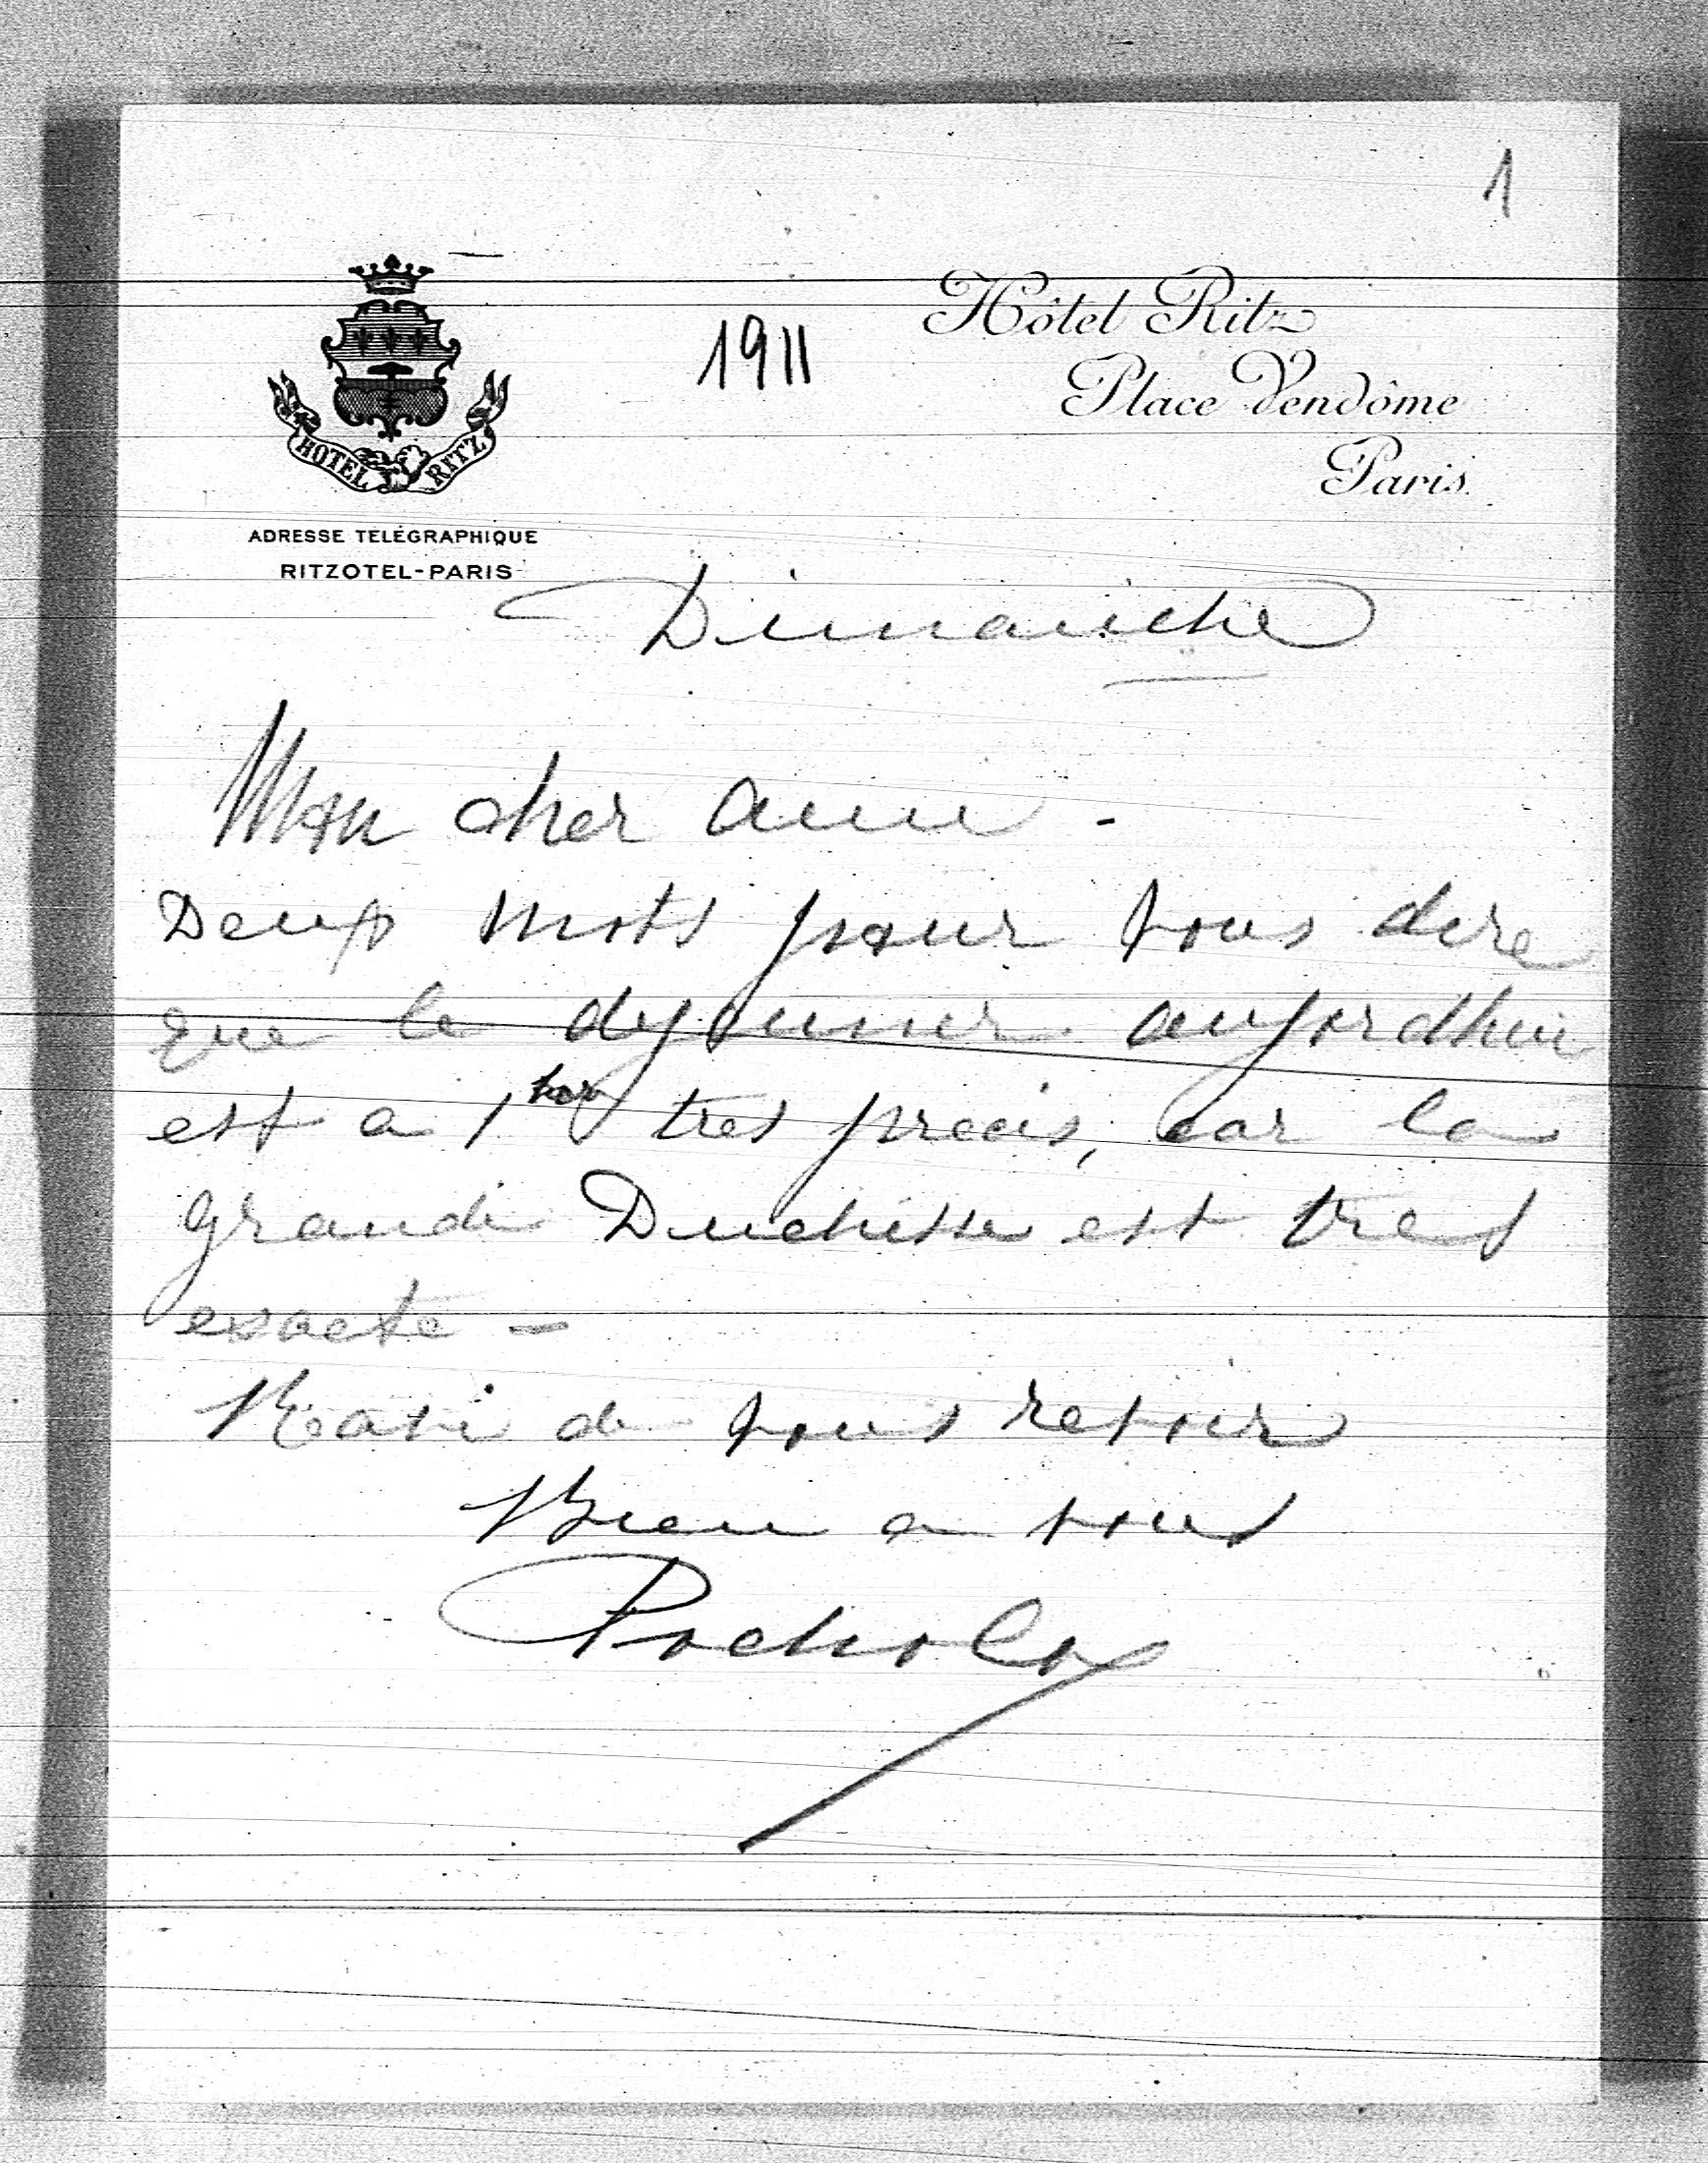 1
1911
Hôtel Ritz
Place Vendôme
Paris
HOTEL RITZ
ADRESSE TÉLÉGRAPHIQUE
RITZOTEL-PARIS
Dimanche
Mon cher ami -
Deux mots pour vous dire
que le dejeuner aujordhui
est a 1 tres precis, car la
grande Duchesse est tres
exacte -
Ravi de vous revoir
Bien a vous
Pocholo